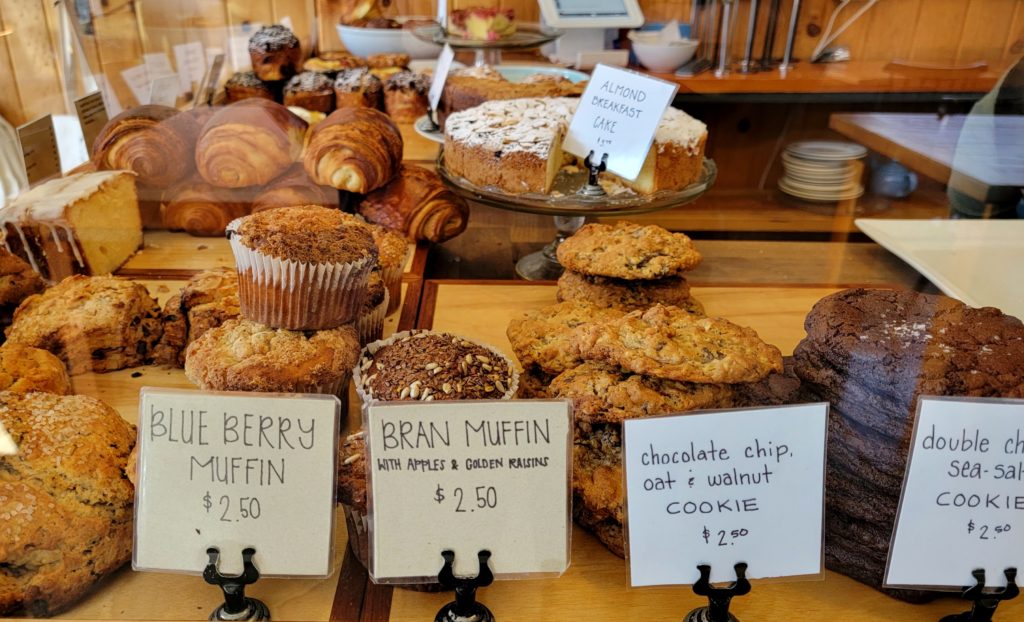 ALMOND
BREAKFAST
CAKE
BLUE BERRY
MUFFIN
$2.50
BRAN MUFFIN
WITH APPLES & GOLDEN RAISINS
$2.50
chocolate chip,
oat & walnut
COOKIE
$2.50
double ch
sea-sal
COOKIE
$2.50